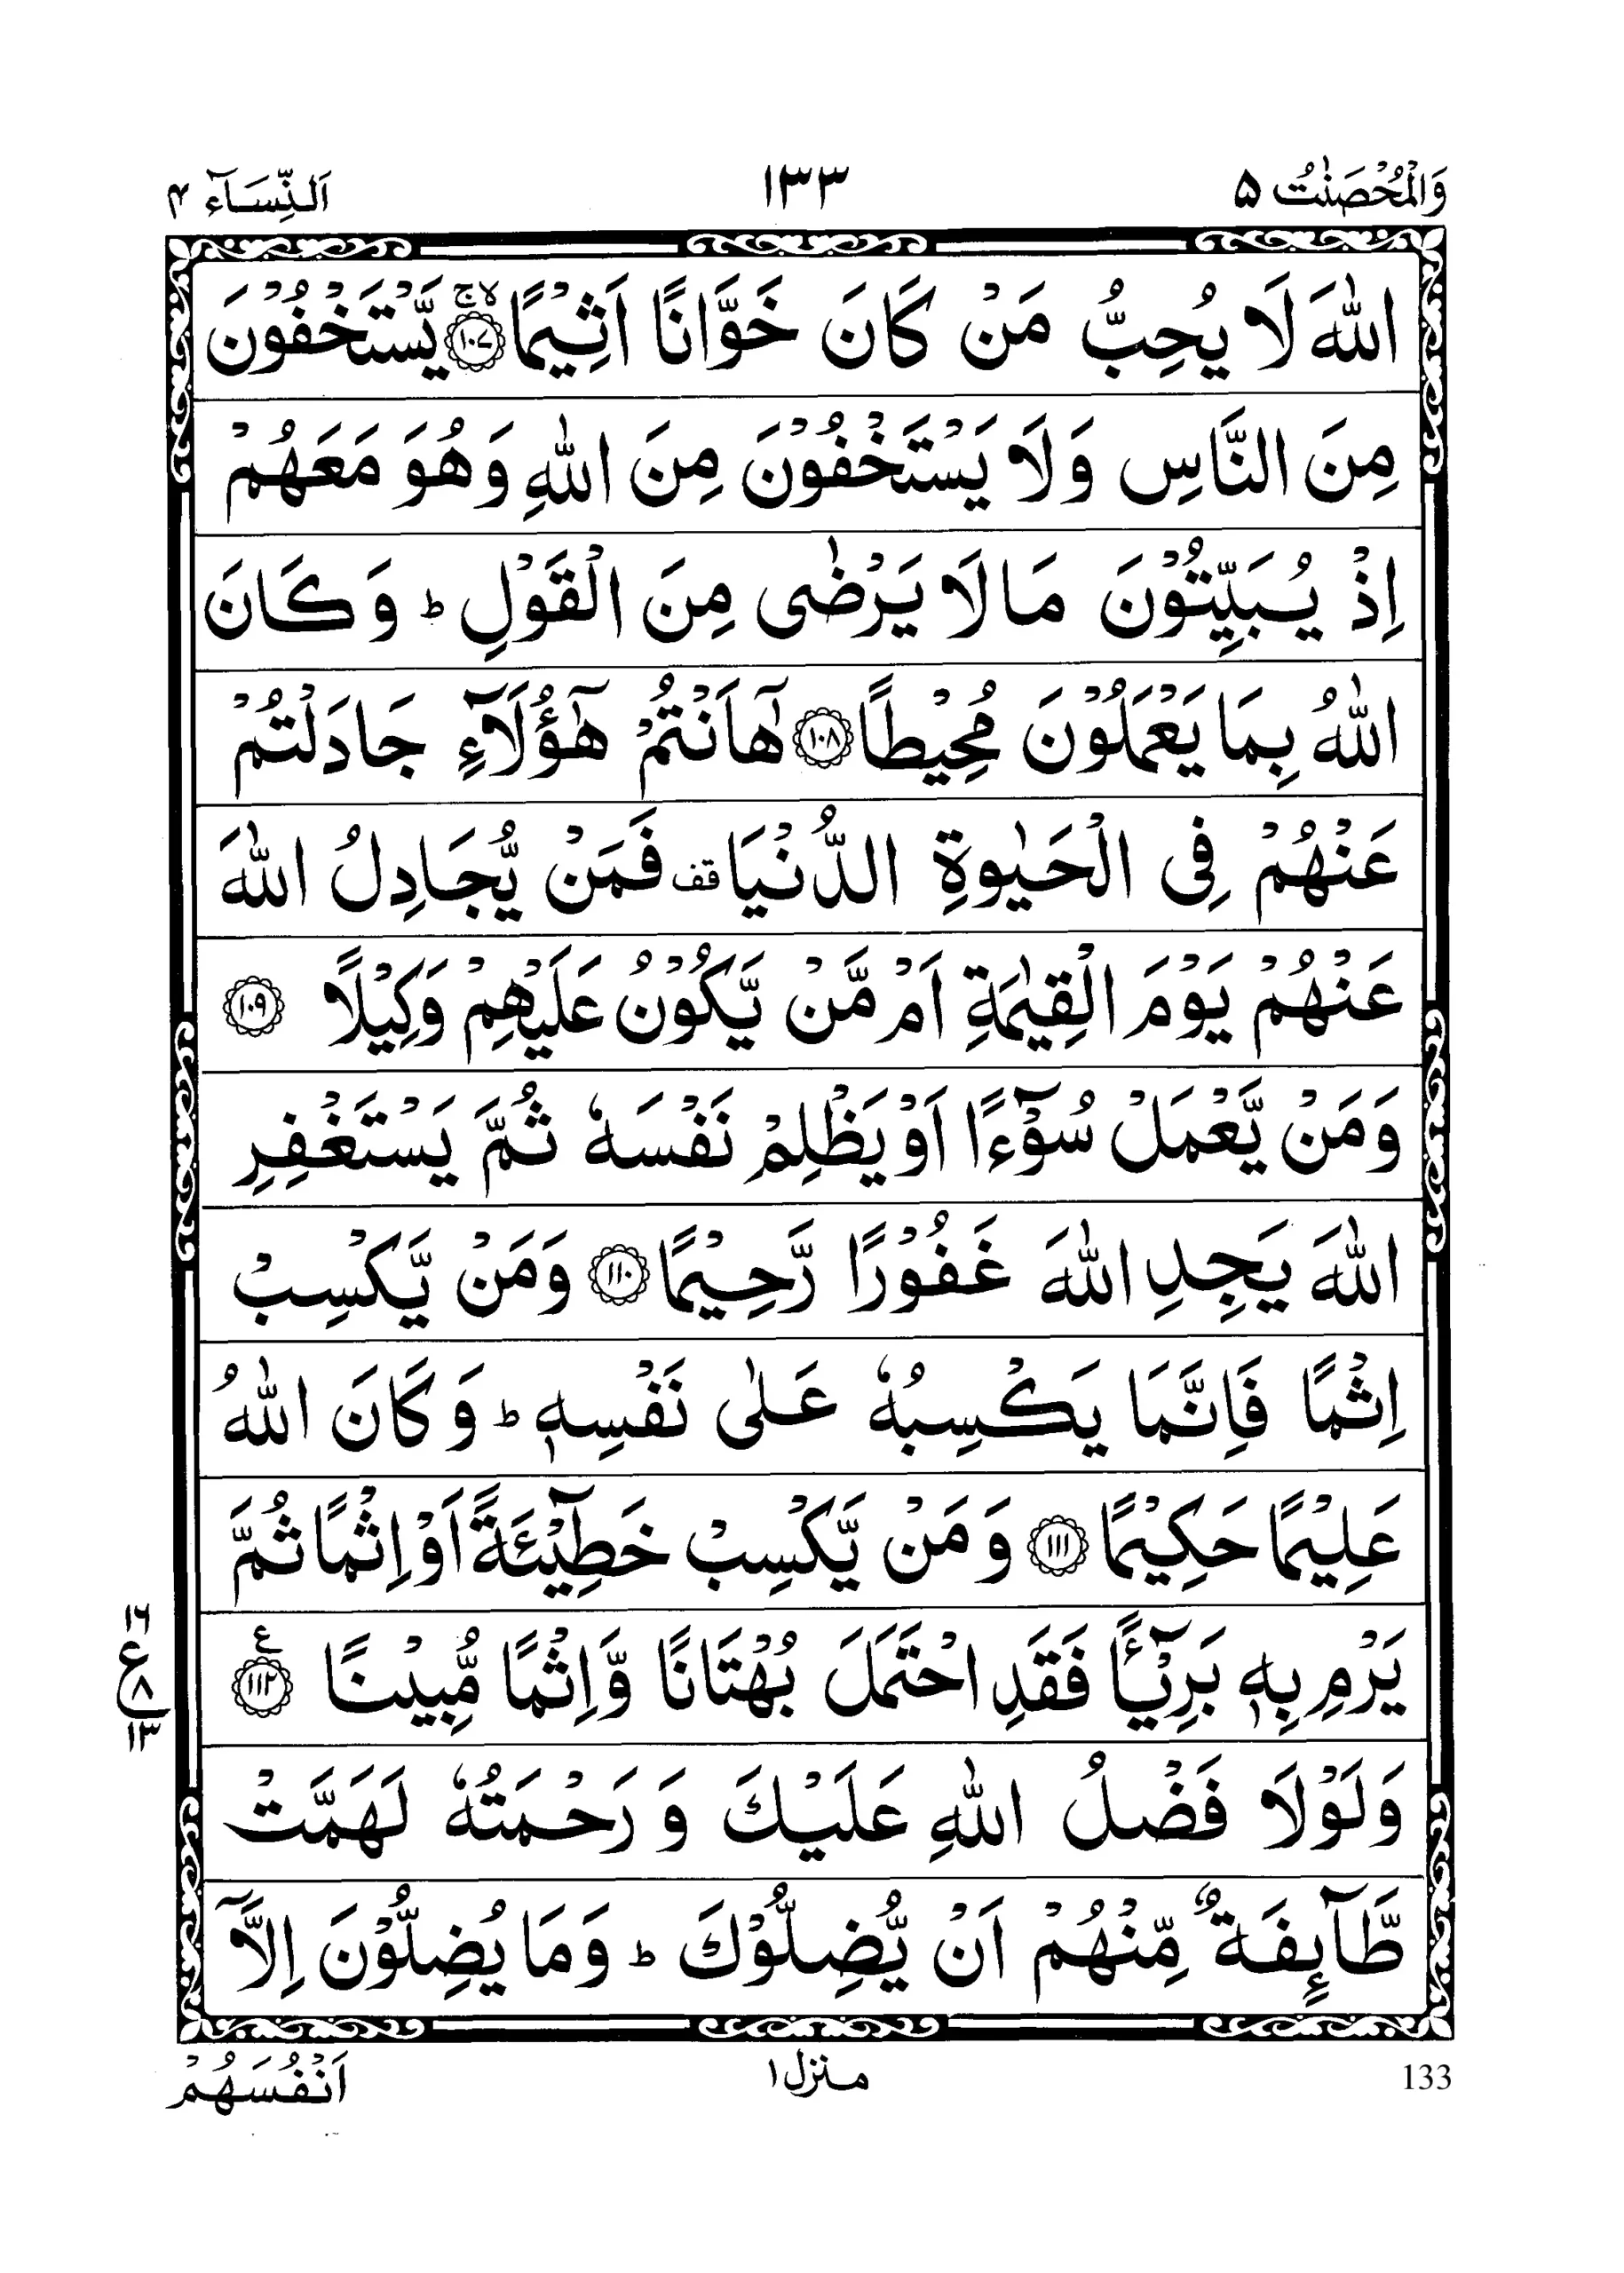 وَالْمُحْصَنٰتُ ۵ ۱۳۳ اَلنِّسَآء ۴
اللّٰهَ لَا يُحِبُّ مَنْ كَانَ خَوَّانًا اَثِيْمًا ۙۚ ﴿۱۰۷﴾ يَّسْتَخْفُوْنَ
مِنَ النَّاسِ وَلَا يَسْتَخْفُوْنَ مِنَ اللّٰهِ وَهُوَ مَعَهُمْ
اِذْ يُبَيِّتُوْنَ مَا لَا يَرْضٰى مِنَ الْقَوْلِ ؕ وَكَانَ
اللّٰهُ بِمَا يَعْمَلُوْنَ مُحِيْطًا ﴿۱۰۸﴾ هٰٓاَنْتُمْ هٰٓؤُلَآءِ جَادَلْتُمْ
عَنْهُمْ فِى الْحَيٰوةِ الدُّنْيَا قف فَمَنْ يُّجَادِلُ اللّٰهَ
عَنْهُمْ يَوْمَ الْقِيٰمَةِ اَمْ مَّنْ يَّكُوْنُ عَلَيْهِمْ وَكِيْلًا ﴿۱۰۹﴾
وَمَنْ يَّعْمَلْ سُوْٓءًا اَوْ يَظْلِمْ نَفْسَهٗ ثُمَّ يَسْتَغْفِرِ
اللّٰهَ يَجِدِ اللّٰهَ غَفُوْرًا رَّحِيْمًا ﴿۱۱۰﴾ وَمَنْ يَّكْسِبْ
اِثْمًا فَاِنَّمَا يَكْسِبُهٗ عَلٰى نَفْسِهٖ ؕ وَكَانَ اللّٰهُ
عَلِيْمًا حَكِيْمًا ﴿۱۱۱﴾ وَمَنْ يَّكْسِبْ خَطِيْٓئَةً اَوْ اِثْمًا ثُمَّ
يَرْمِ بِهٖ بَرِيْٓـًٔا فَقَدِ احْتَمَلَ بُهْتَانًا وَّاِثْمًا مُّبِيْنًا ﴿۱۱۲﴾ ع
۱۶
ع ۸
۱۳
وَلَوْلَا فَضْلُ اللّٰهِ عَلَيْكَ وَرَحْمَتُهٗ لَهَمَّتْ
طَّآئِفَةٌ مِّنْهُمْ اَنْ يُّضِلُّوْكَ ؕ وَمَا يُضِلُّوْنَ اِلَّآ
133 منزل ۱ اَنْفُسَهُمْ